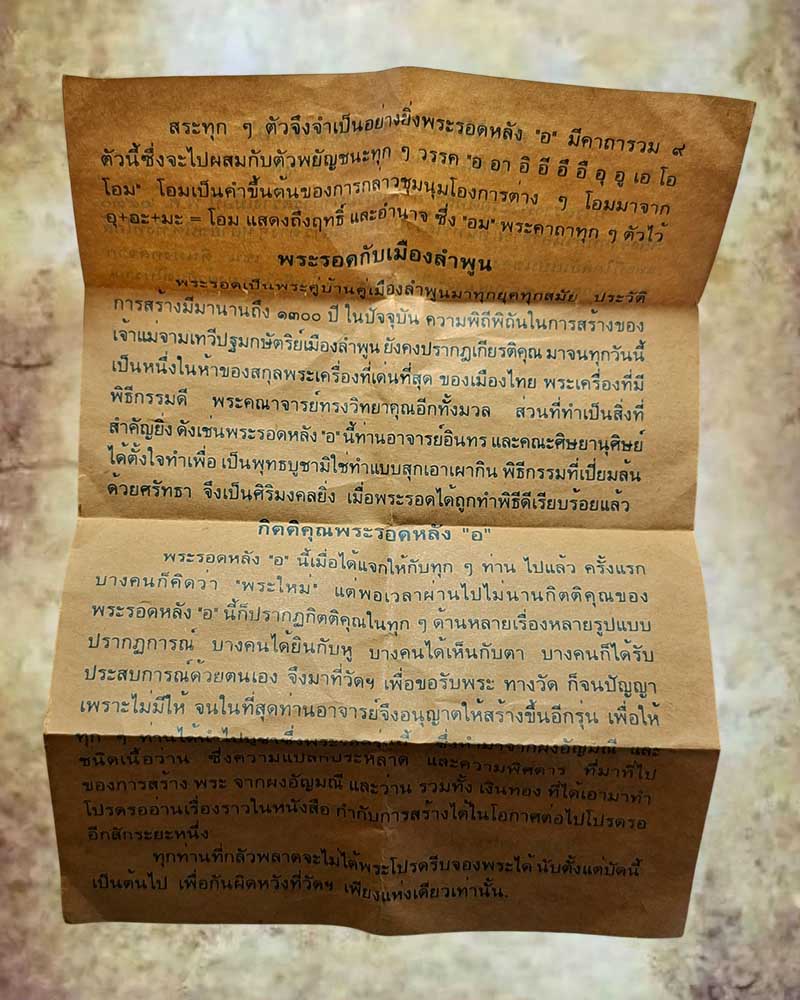 สระทุก ๆ ตัวจึงจำเป็นอย่างยิ่งพระรอดหลัง "อ" มีคาถารวม ๙
ตัวนี้ซึ่งจะไปผสมกับตัวพยัญชนะทุก ๆ วรรค "อ อา อิ อี อึ อื อุ อู เอ โอ
โอม" โอมเป็นคำขึ้นต้นของการกลาวชุมนุมโองการต่าง ๆ โอมมาจาก
อุ+อะ+มะ = โอม แสดงถึงฤทธิ์ และอำนาจ ซึ่ง "อม" พระคาถาทุก ๆ ตัวไว้
พระรอดกับเมืองลำพูน
พระรอดเป็นพระคู่บ้านคู่เมืองลำพูนมาทุกยุคทุกสมัย ประวัติ
การสร้างมีมานานถึง ๑๓๐๐ ปี ในปัจจุบัน ความพิถีพิถันในการสร้างของ
เจ้าแม่จามเทวีปฐมกษัตริย์เมืองลำพูน ยังคงปรากฏเกียรติคุณ มาจนทุกวันนี้
เป็นหนึ่งในห้าของสกุลพระเครื่องที่เด่นที่สุด ของเมืองไทย พระเครื่องที่มี
พิธีกรรมดี พระคณาจารย์ทรงวิทยาคุณอีกทั้งมวล ส่วนที่ทำเป็นสิ่งที่
สำคัญยิ่ง ดังเช่นพระรอดหลัง "อ" นี้ท่านอาจารย์อินทร และคณะศิษยานุศิษย์
ได้ตั้งใจทำเพื่อ เป็นพุทธบูชามิใช่ทำแบบสุกเอาเผากิน พิธีกรรมที่เปี่ยมล้น
ด้วยศรัทธา จึงเป็นศิริมงคลยิ่ง เมื่อพระรอดได้ถูกทำพิธีดีเรียบร้อยแล้ว
กิตติคุณพระรอดหลัง "อ"
พระรอดหลัง "อ" นี้เมื่อได้แจกให้กับทุก ๆ ท่าน ไปแล้ว ครั้งแรก
บางคนก็คิดว่า "พระใหม่" แต่พอเวลาผ่านไปไม่นานกิตติคุณของ
พระรอดหลัง "อ" นี้ก็ปรากฏกิตติคุณในทุก ๆ ด้านหลายเรื่องหลายรูปแบบ
ปรากฏการณ์ บางคนได้ยินกับหู บางคนได้เห็นกับตา บางคนก็ได้รับ
ประสบการณ์ด้วยตนเอง จึงมาที่วัดฯ เพื่อขอรับพระ ทางวัด ก็จนปัญญา
เพราะไม่มีให้ จนในที่สุดท่านอาจารย์จึงอนุญาตให้สร้างขึ้นอีกรุ่น เพื่อให้
ทุก ๆ ท่านได้นำไปบูชาซึ่งพระรอดรุ่นนี้ ซึ่งทำมาจากผงอัญมณี และ
ชนิดเนื้อว่าน ซึ่งความแปลกประหลาด และความพิศดาร ที่มาที่ไป
ของการสร้าง พระ จากผงอัญมณี และว่าน รวมทั้ง เงินทอง ที่ได้เอามาทำ
โปรดรออ่านเรื่องราวในหนังสือ กำกับการสร้างได้ในโอกาศต่อไปโปรดรอ
อีกสักระยะหนึ่ง
ทุกท่านที่กลัวพลาดจะไม่ได้พระโปรดรีบจองพระได้ นับตั้งแต่บัดนี้
เป็นต้นไป เพื่อกันผิดหวังที่วัดฯ เพียงแห่งเดียวเท่านั้น.